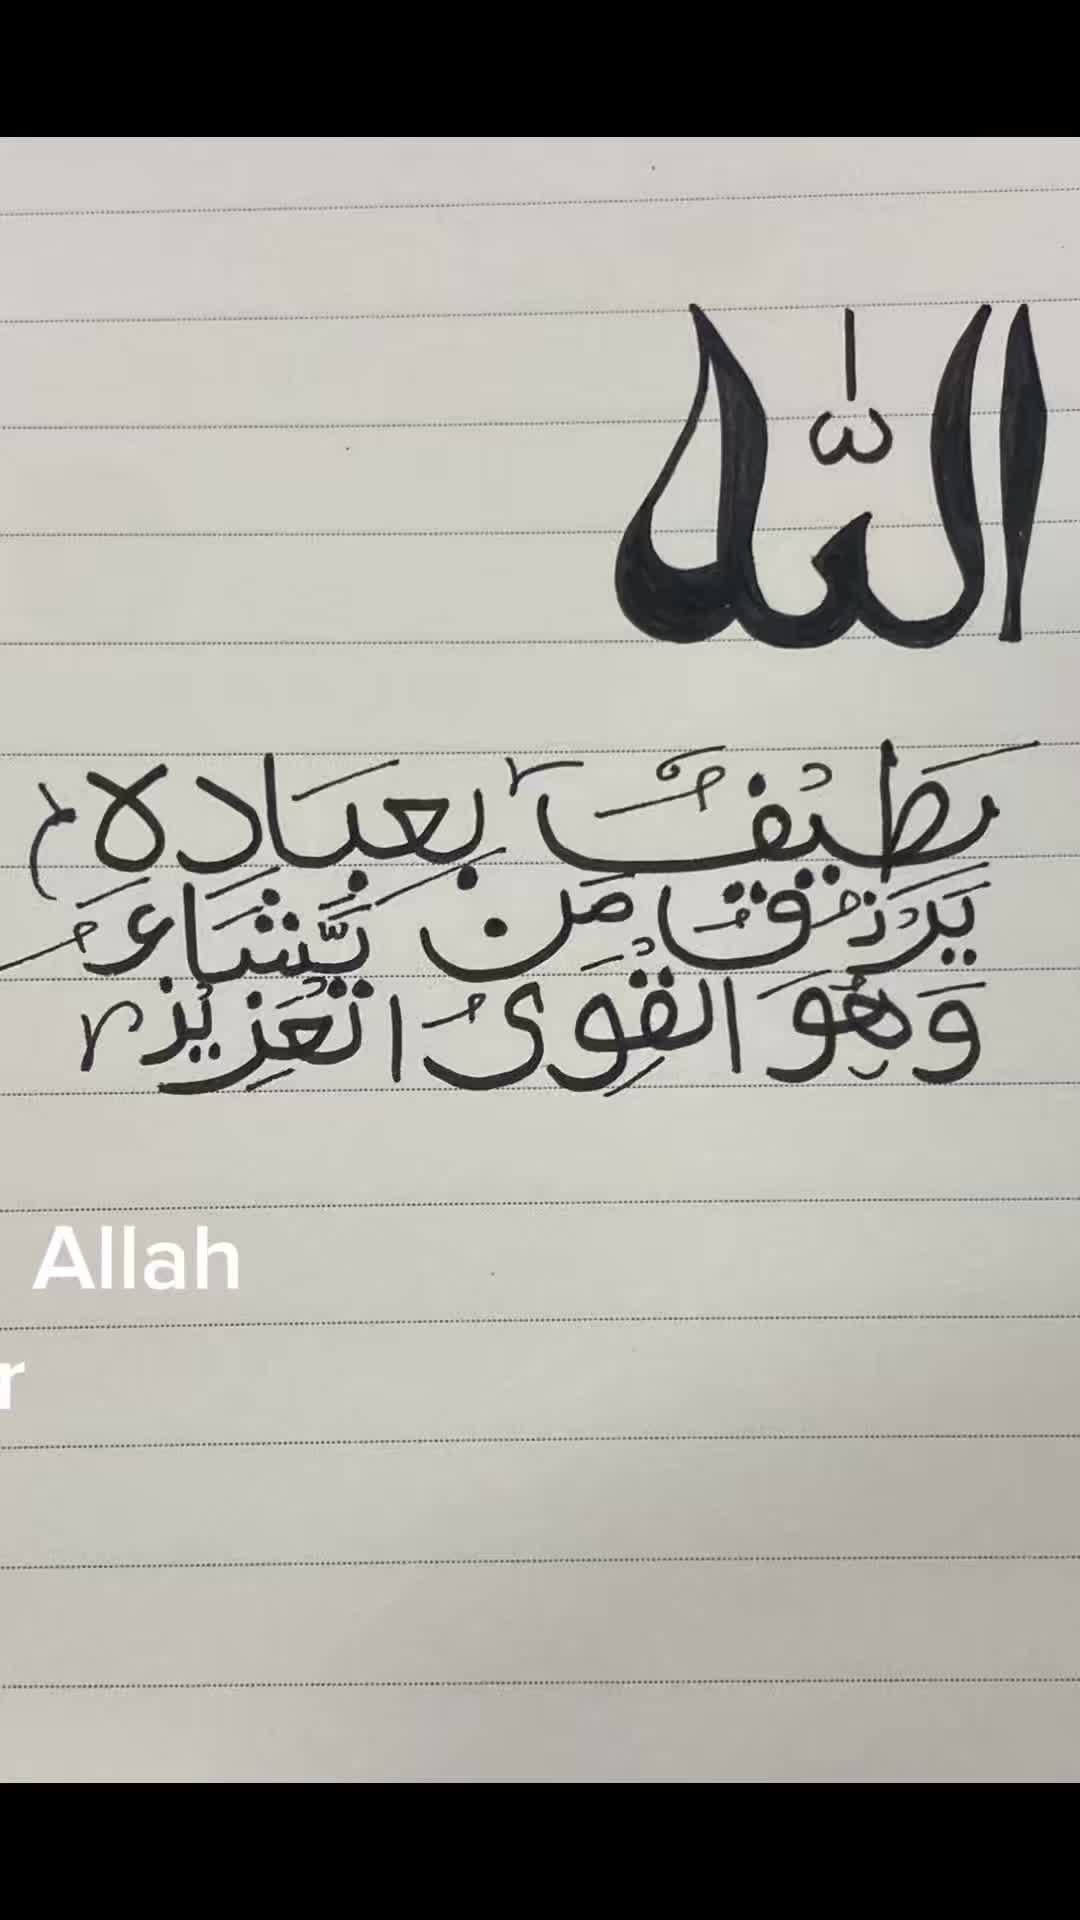 الله
لطيف بعباده
يرزق من يشاء
وهو القوى العزيز
Allah
r